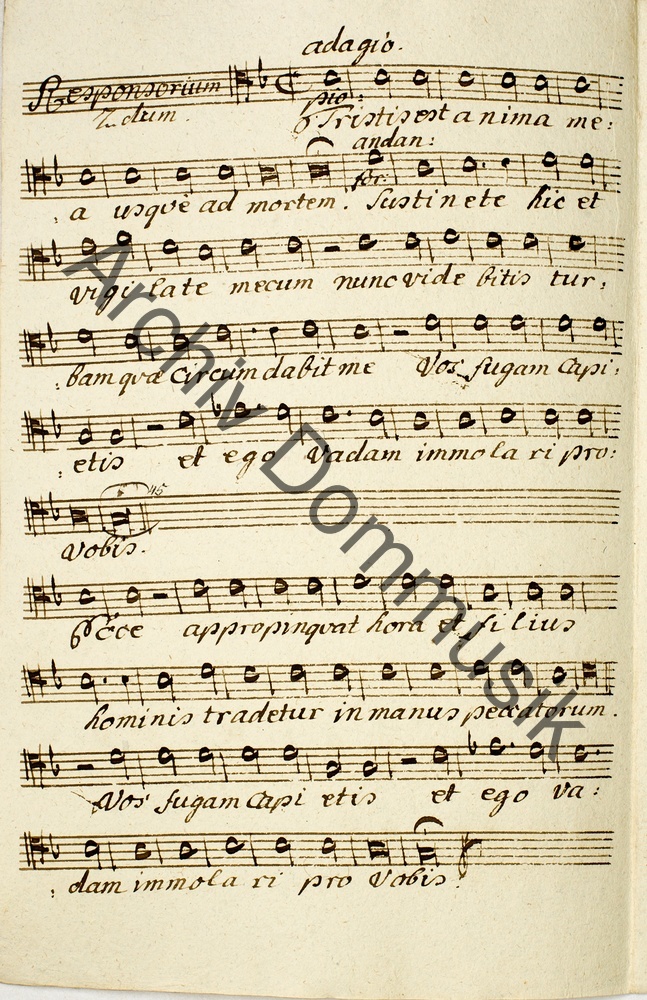 adagio.
Responsorium
2.dum.
pio:
Tristis est anima me:
andan:
for:
: a usquè ad mortem. Sustinete hic et
vigilate mecum nunc videbitis tur:
: bam quæ circumdabit me Vos fugam Capi:
: etis et ego Vadam immolari pro:
45
vobis.
Ecce appropinquat hora et filius
hominis tradetur in manus peccatorum.
Vos fugam Capietis et ego va:
: dam immolari pro vobis.
Archiv Dommusik